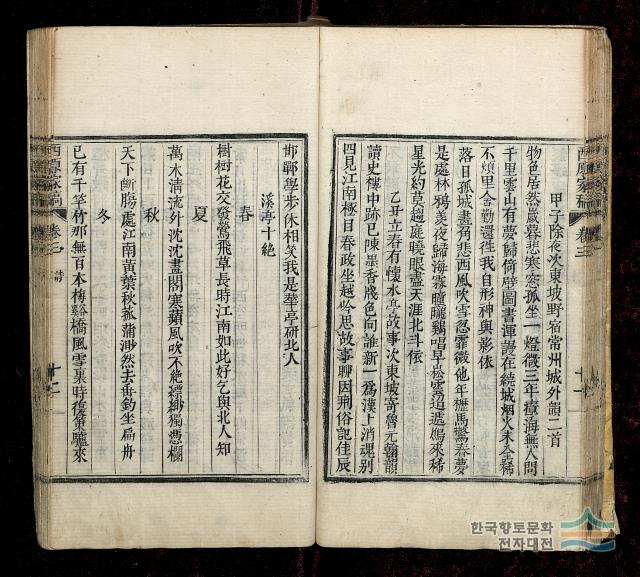 甲子除夜次東坡野宿常州城外韻二首
物色居然歲暮悲寒窓孤坐一燈微三年瘴海無人問
千里雲山有夢歸倚壁圖書渾謾在繞城烟火未全稀
不煩里舍勤還徃我自形神與影依
落日孤城晝角悲西風吹雪忽霏微他年櫪馬驚春夢
是處林鴉羡夜歸海霧曈曨鷄唱早崧雲迢遞鴈來稀
星光約莫趨庭曉眼盡天涯北斗依
乙丑立春有懷水亭故事次東坡寄魯元翰韻
讀史樓中跡已陳墨香牋色向誰新一爲漢上消魂别
四見江南極目春政坐越吟思故事聊因荆俗記佳辰
邯鄲學步休相笑我是華亭研北人
溪亭十絶
春
樹樹花交發鶯飛草長時江南如此好乞與北人知
夏
萬木淸流外沈沈畫閣寒蘋風吹不絶縹緲獨憑欄
秋
天下斷膓處江南黃葉秋菰蒲渺然去垂釣坐扁舟
冬
已有千竿竹那無百本梅谿橋風雪裏時復策驢來
卷三
詩
十二
卷三
한국향토문화
전자대전